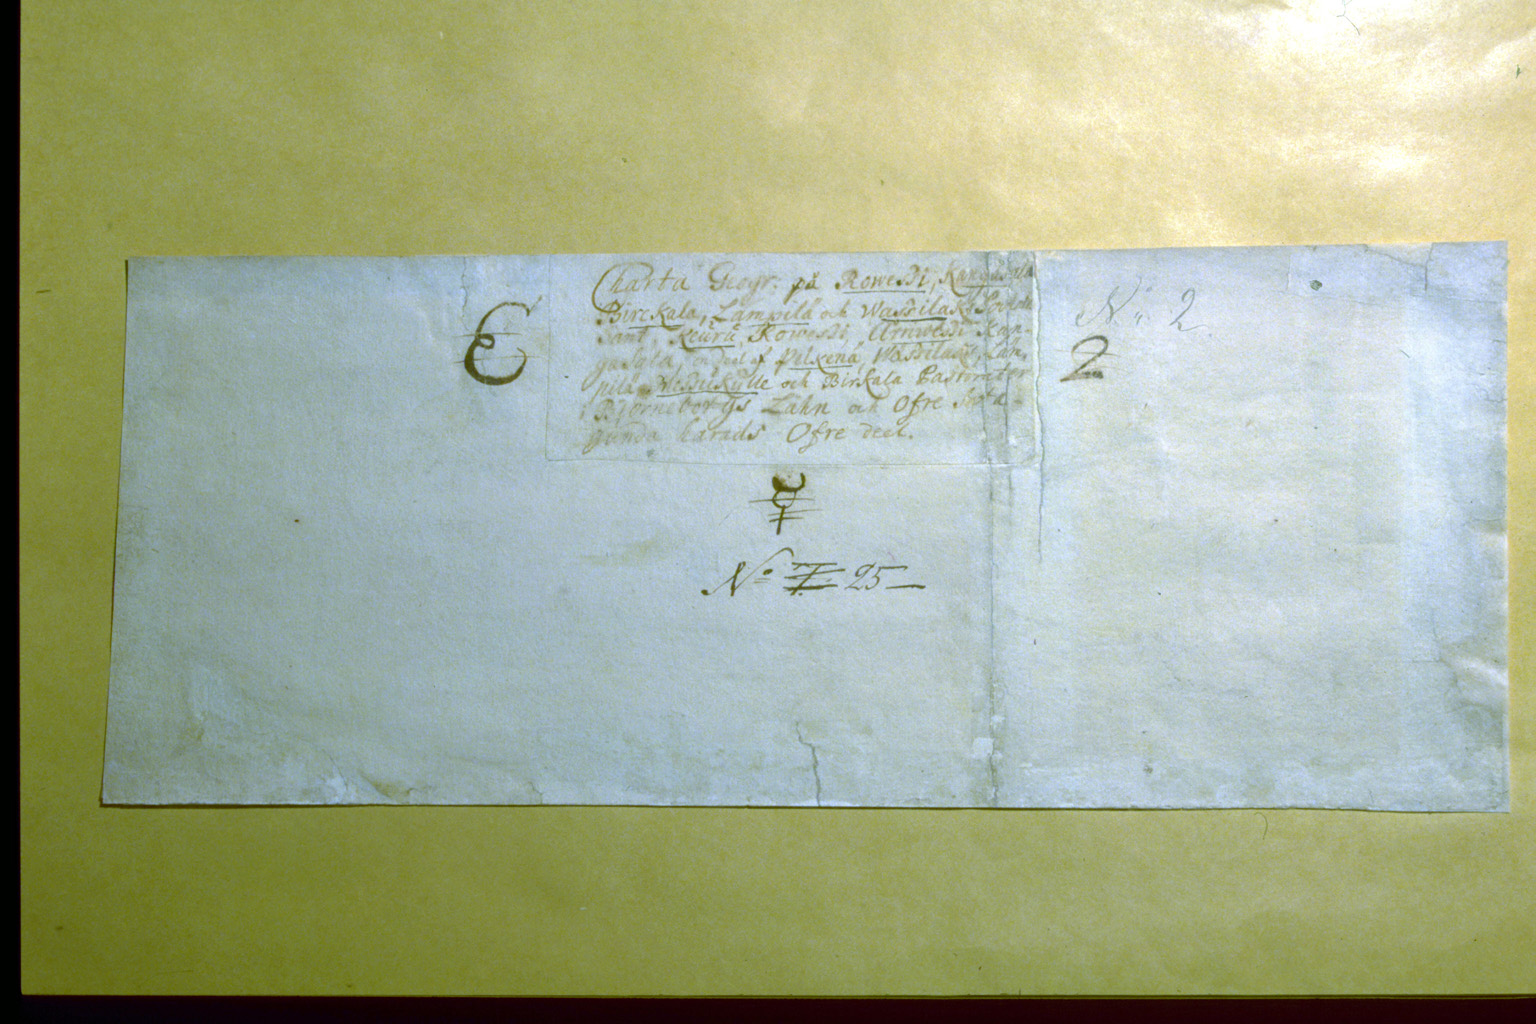 Charta Geogr: på Rowessi, Kangasala
Birckala, Lämpilä och Wassilax Sochnar
samt Keuru, Rowessi, Urnwessi Kan-
gasala, en deel af Pelkenä, Wassilaxs, Läm,
pilä, Messukylle och Birkala Pastorater
Björneborgs Lähn och Ofre
gunda härads Ofre deel.
E
N:o 2.
2
No 25